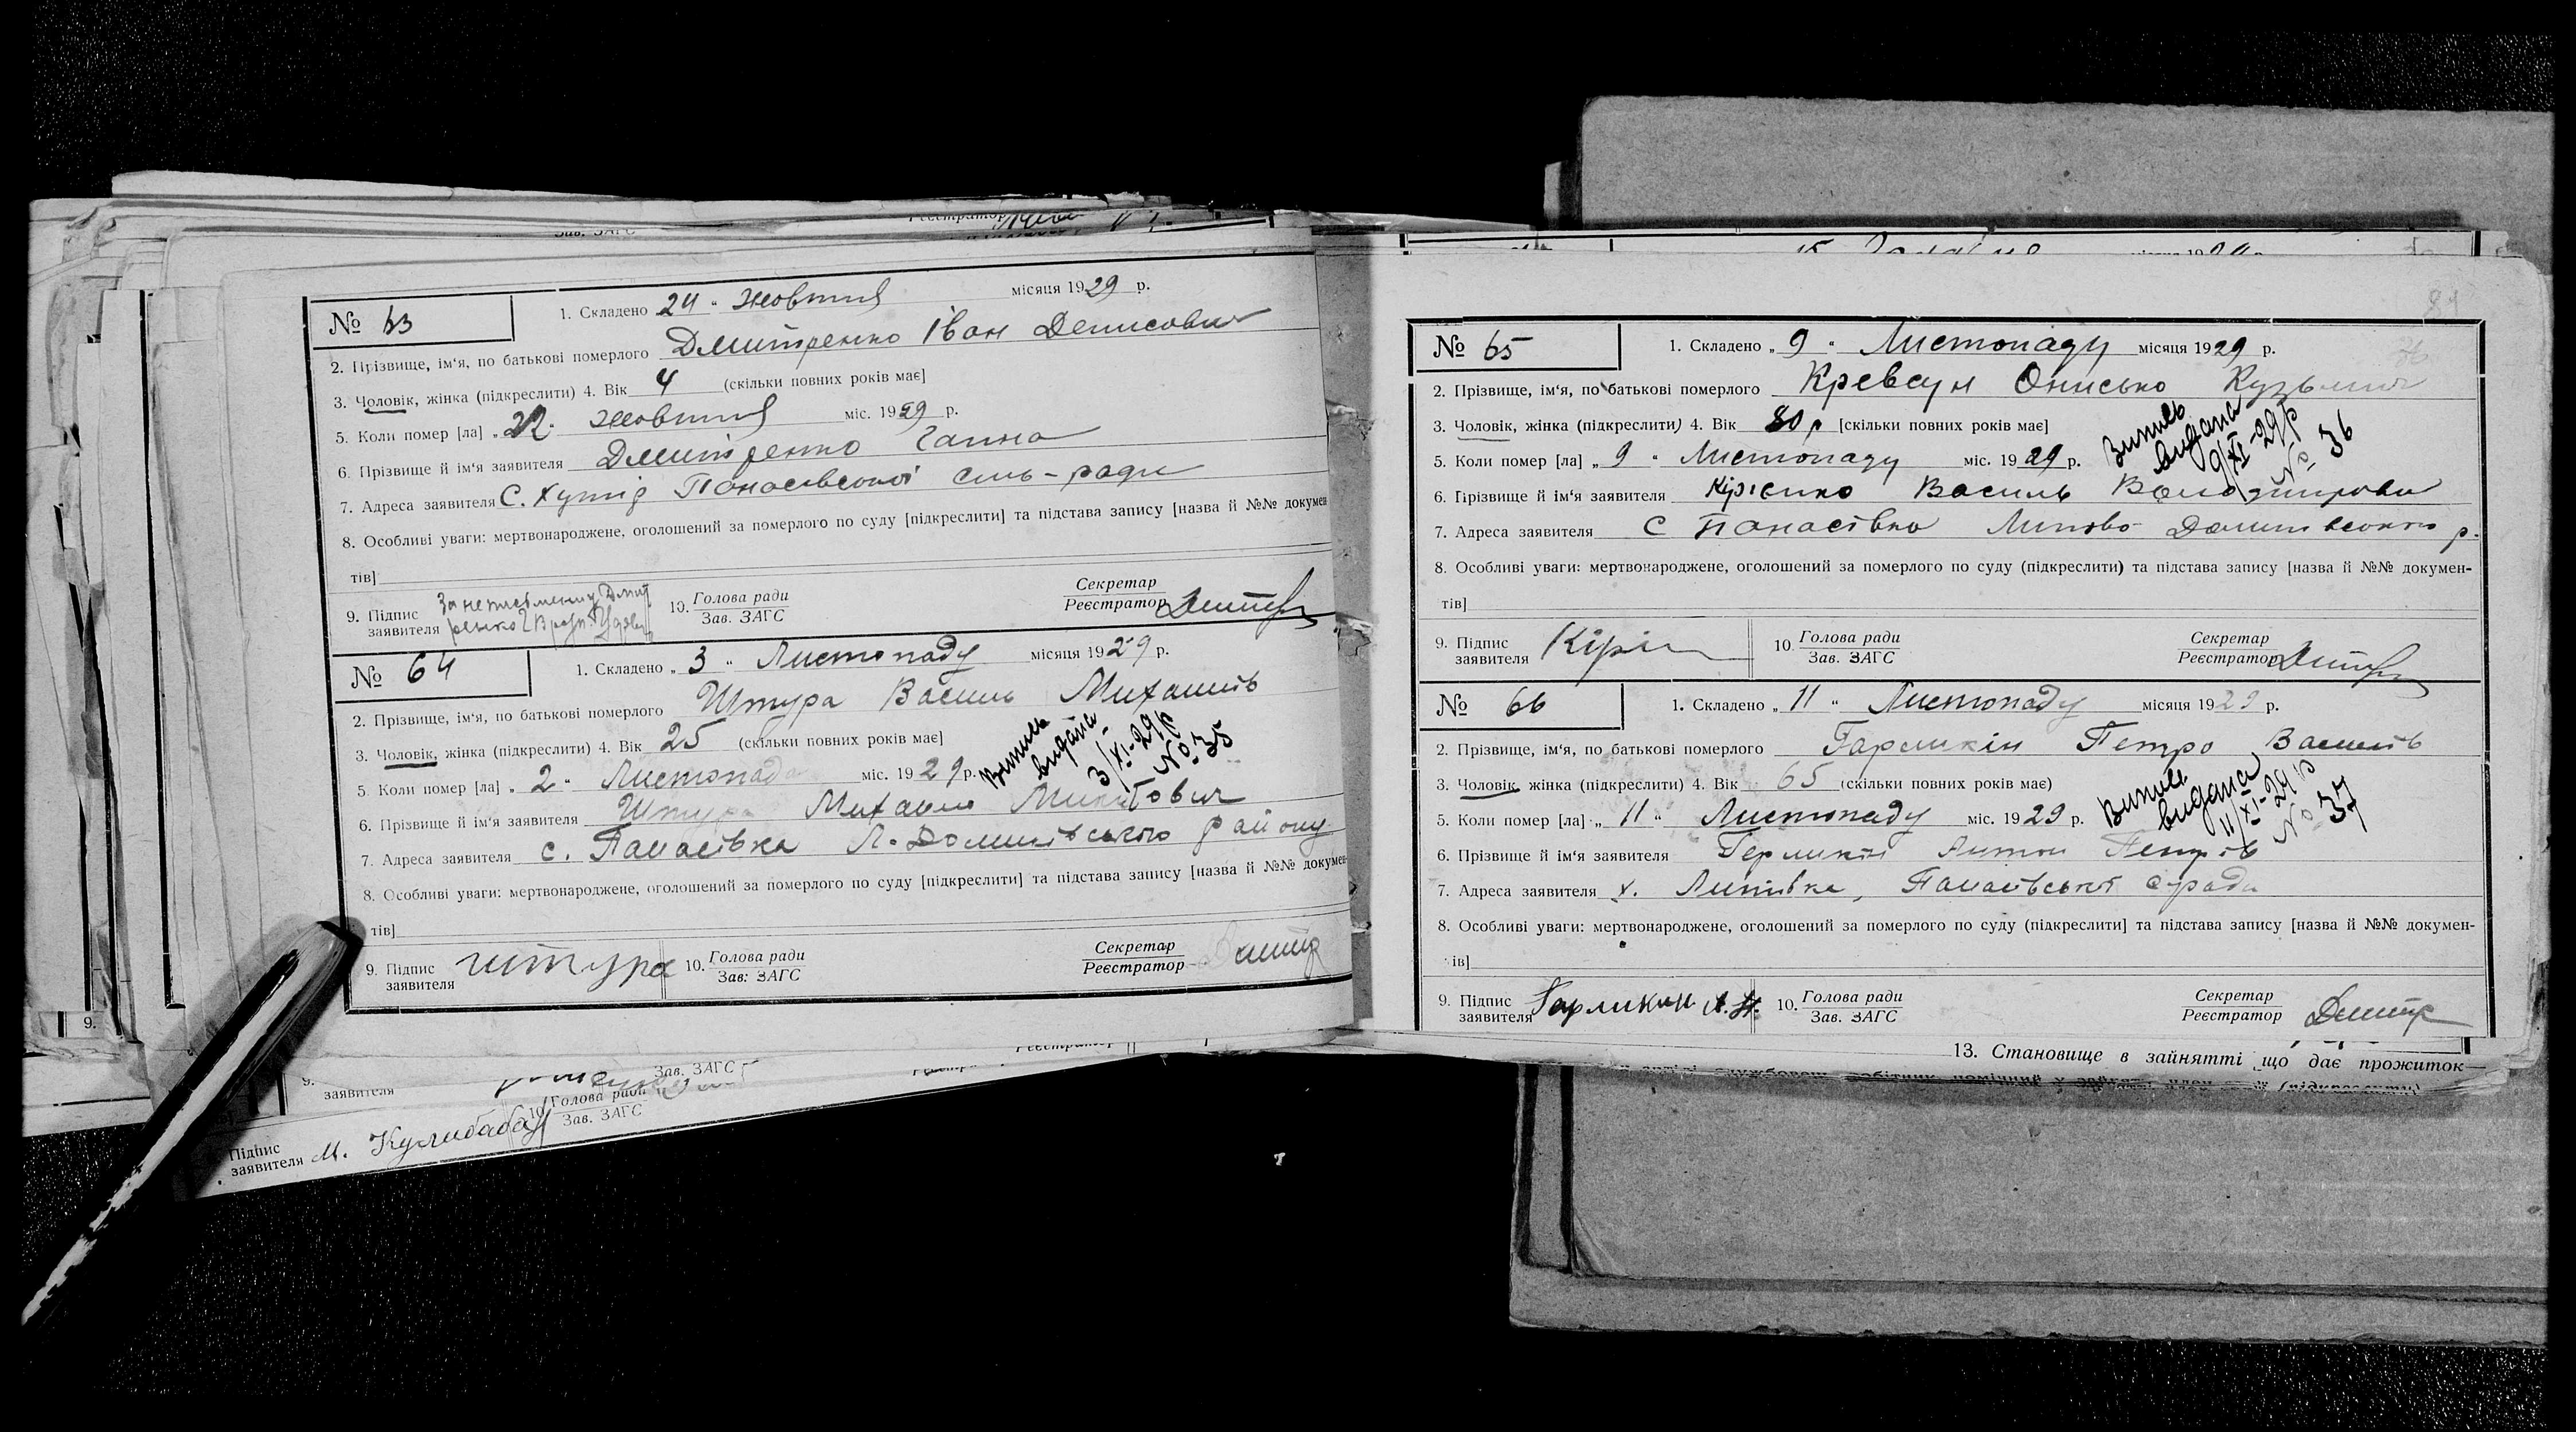 № 63
1. Складено 24 " Жовтня місяця 1929 р.
2. Прізвище, ім'я, по батькові померлого Дмитренко Іван Денисович
3. Чоловік, жінка (підкреслити) 4. Вік 4 (скільки повних років має]
5. Коли помер [ла] „ 22 " Жовтня міс. 1929 р.
6. Прізвище й ім'я заявителя Дмитренко Ганна
7. Адреса заявителя С. Хутір Панасівської сіль-ради
8. Особливі уваги: мертвонароджене, оголошений за померлого по суду [підкреслити] та підстава запису [назва й №№ докумен
тів]
9. Підпис заявителя За неписьменну Дмит
ренко Г
10. Голова ради
Зав. ЗАГС
Секретар
Реєстратор
№ 64
1. Складено „ 3 " Листопаду місяця 1929 р.
2. Прізвище, ім'я, по батькові померлого Штура Василь Михайлів
3. Чоловік, жінка (підкреслити) 4. Вік 25 (скільки повних років має]
5. Коли помер [ла] „ 2 " Листопада міс. 1929 р.
Витяг видана 3/XI-29р № 35
6. Прізвище й ім'я заявителя Штура Михайло Микитович
7. Адреса заявителя с. Панасівка Л-Долинівського району
8. Особливі уваги: мертвонароджене, оголошений за померлого по суду [підкреслити] та підстава запису [назва й №№ докумен-
тів]
9. Підпис заявителя Штура
10. Голова ради
Зав: ЗАГС
Секретар
Реєстратор
№ 65
1. Складено „ 9 " Листопаду місяця 1929 р.
2. Прізвище, ім'я, по батькові померлого Кревсун Онисько Кузьмич
3. Чоловік, жінка (підкреслити) 4. Вік 80 р [скільки повних років має]
5. Коли помер [ла] „ 9 " Листопаду міс. 1929 р.
видана 9/XI-29р № 36
6. Прізвище й ім'я заявителя Василь Володимирович
7. Адреса заявителя С Панасівка Липово Долинівського р.
8. Особливі уваги: мертвонароджене, оголошений за померлого по суду (підкреслити) та підстава запису [назва й №№ докумен-
тів]
9. Підпис заявителя
10. Голова ради
Зав. ЗАГС
Секретар
Реєстратор
№ 66
1. Складено „ 11 " Листопаду місяця 1929 р.
2. Прізвище, ім'я, по батькові померлого Гарликін Петро Василів
3. Чоловік, жінка (підкреслити) 4. Вік 65 (скільки повних років має)
5. Коли помер [ла] „ 11 " Листопаду міс. 1929 р.
видана 11/XI-29 р № 37
6. Прізвище й ім'я заявителя Герликін Антон Петрів
7. Адреса заявителя х. Липівка, Панасівської с/ради
8. Особливі уваги: мертвонароджене, оголошений за померлого по суду (підкреслити] та підстава запису [назва й №№ докумен-
ів]
9. Підпис заявителя Гарликин А. П.
10. Голова ради
Зав. ЗАГС
Секретар
Реєстратор
13. Становище в зайнятті що дає прожиток
9.
заявителя
Зав. ЗАГС
Підпис
заявителя М. Кулибаба
10. Голова ради
Зав. ЗАГС